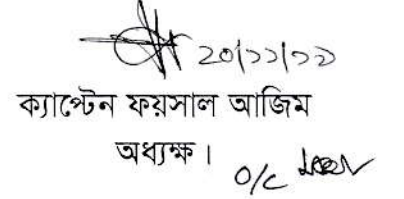 ২০/১১/২২
ক্যাপ্টেন ফয়সাল আজিম
অধ্যক্ষ।
O/C